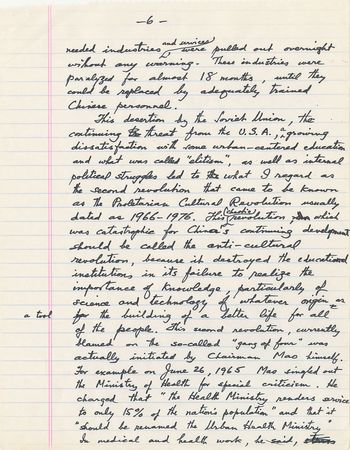 - 6 -
needed industries and services were pulled out overnight
without any warning. These industries were
paralyzed for almost 18 months, until they
could be replaced by adequately trained
Chinese personnel.
This desertion by the Soviet Union, the
continuing threat from the U.S.A., growing
dissatisfaction with some urban-centered education
and what was called "elitism", as well as internal
political struggles led to the what I regard as
the second revolution that came to be known
as the Proletarian Cultural Revolution usually
dated as 1966-1976. This revolution, which
was catastrophic for China's continuing development
should be called the anti-cultural
revolution, because it destroyed the educational
institutions in its failure to realize the
importance of knowledge, particularly of
science and technology of whatever origin as
a tool for the building of a better life for all
of the people. This second revolution, currently
blamed on the so-called "gang of four" was
actually initiated by Chairman Mao himself.
For example on June 26, 1965 Mao singled out
the Ministry of Health for special criticism. He
charged that "the Health Ministry renders service
to only 15% of the nation's population" and that it
"should be renamed the Urban Health Ministry"
In medical and health work, he said,